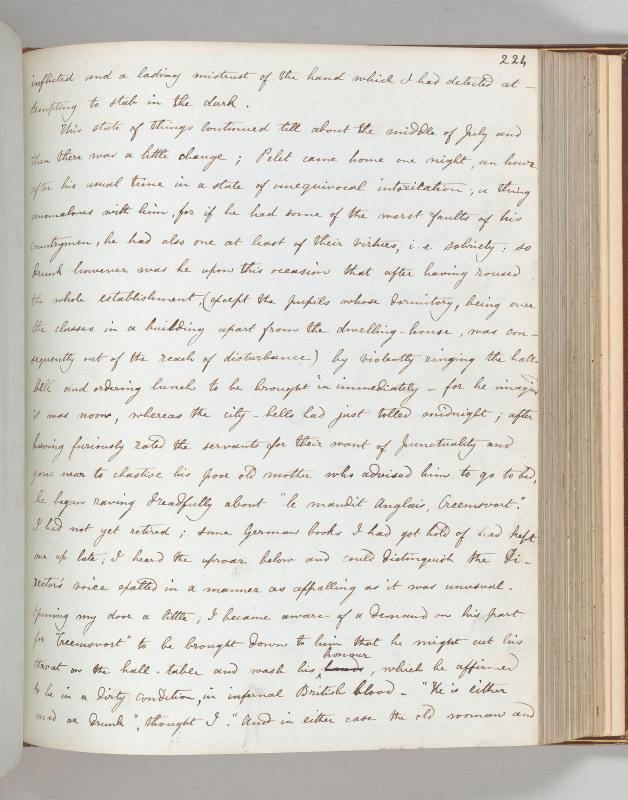 224
inflicted and a lasting mistrust of the hand which I had detected at-
tempting to stab in the dark.
This state of things continued till about the middle of July and
then there was a little change; Pelet came home one night, an hour
after his usual time in a state of unequivocal intoxication, a thing
anomalous with him, for if he had some of the worst faults of his
countrymen, he had also one at least of their virtues, i.e sobriety: so
drunk however was he upon this occasion that after having roused
the whole establishment (except the pupils whose dormitory, being over
the classes in a building apart from the dwelling-house, was con-
sequently out of the reach of disturbance) by violently ringing the hall-
bell and ordering lunch to be brought in immediately - for he imagined
it was noon, whereas the city-bells had just tolled midnight; after
having furiously rated the servants for their want of punctuality and
gone near to chastise his poor old mother who advised him to go to bed,
he began raving dreadfully about "le maudit Anglais, Creemsvort."
I had not yet retired; some German books I had got hold of had kept
me up late; I heard the uproar below and could distinguish the Di-
rector's voice exalted in a manner as appalling as it was unusual.
Opening my door a little, I became aware of a demand on his part
for "Creemsvort" to be brought down to him that he might cut his
throat on the hall-table and wash his honour, which he affirmed
to be in a dirty condition, in infernal British blood - "He is either
mad or drunk", thought I "And in either case the old woman and